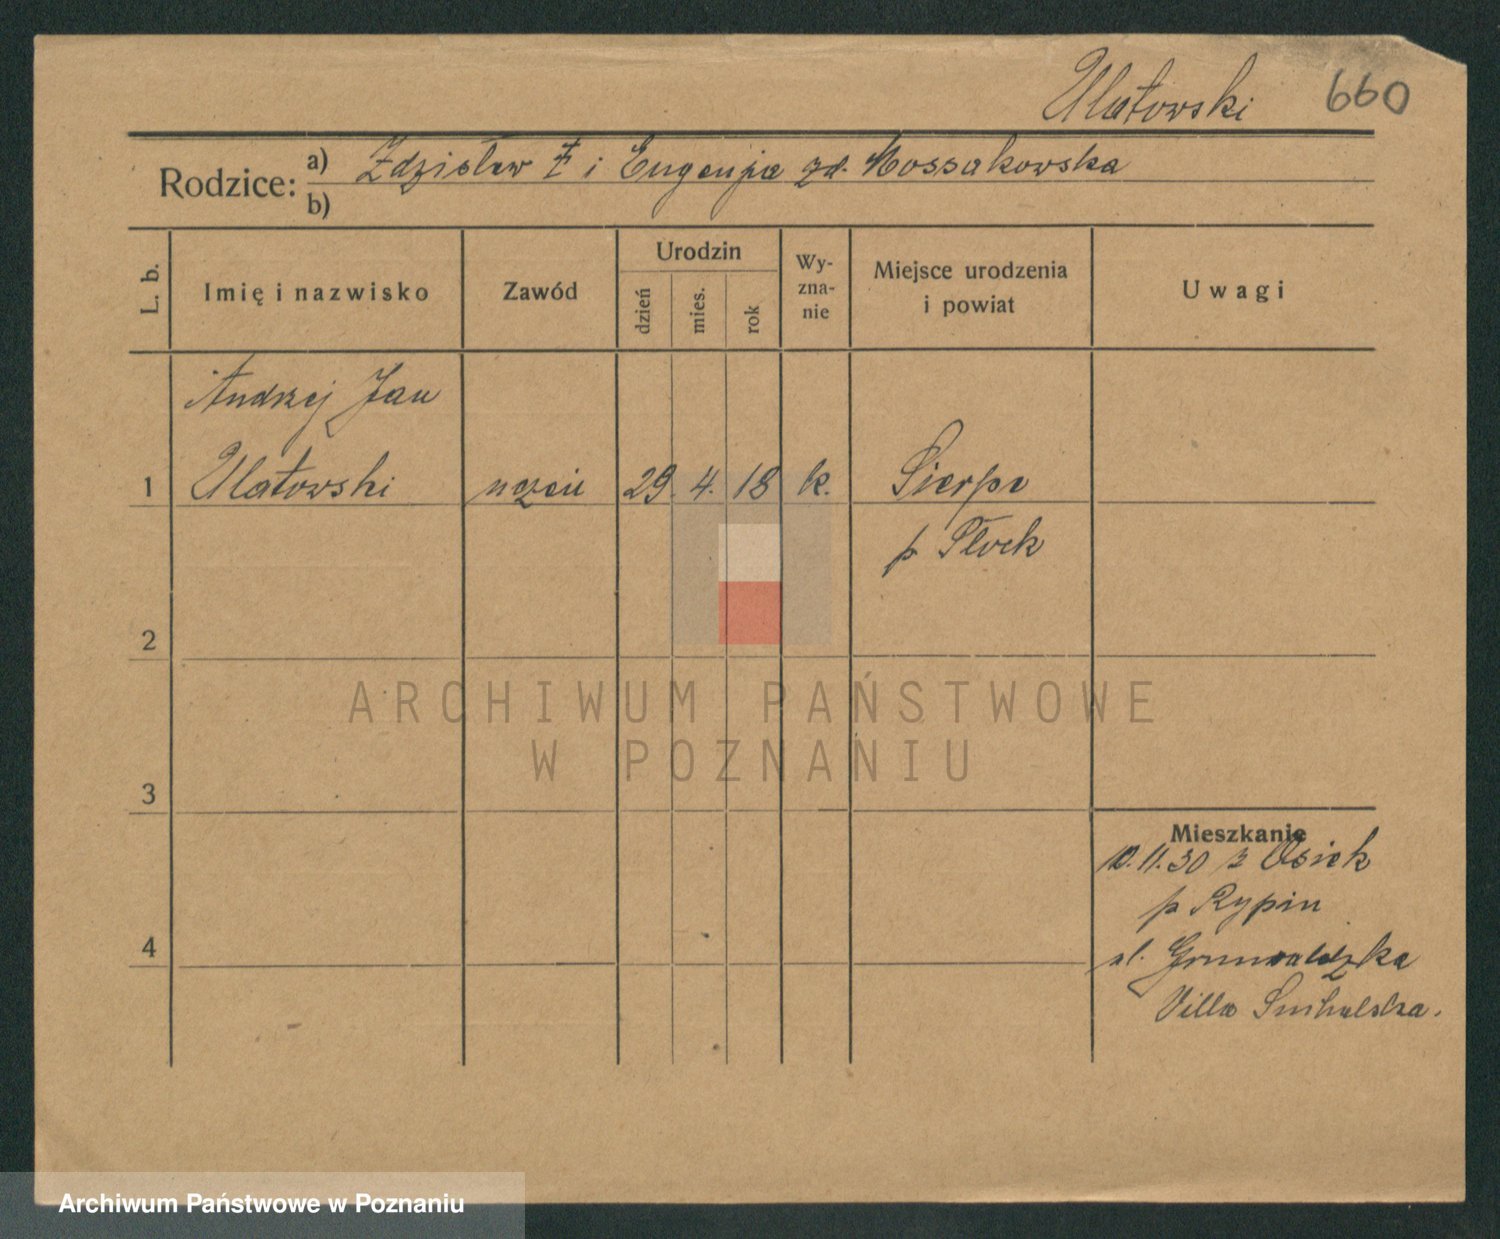 Ulatowski 660
Rodzice: a) Zdzisław Ł i Eugenja zd. Mossakowska
b)
L. b. Imię i nazwisko Zawód Urodzin dzień mies. rok Wy-zna-nie Miejsce urodzenia i powiat Uwagi
Andrzej Jan
1 Ulatowski uczeń 29. 4. 18 k. Sierpc
p Płock
2
ARCHIWUM PAŃSTWOWE
W POZNANIU
3
Mieszkanie
10.11.30 z Osiek
p Rypin
4
ul. Grunwaldzka
Villa
Archiwum Państwowe w Poznaniu